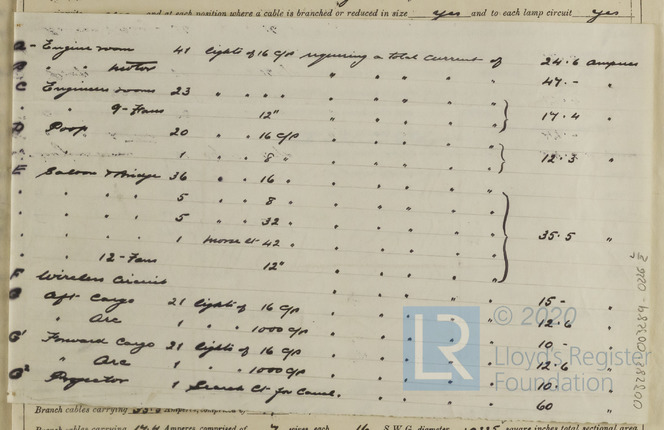 and at each position where a cable is branched or reduced in size yes and to each lamp circuit yes
A - Engine room 41 lights of 16 C/p requiring a total current of 24.6 amperes
B " " motor " " " " 47.- "
C Engineers rooms 23 " " " "
" 9-Fans 12" " " " " 17.4 "
D Poop 20 " 16 C/p " " " "
" 1 " 8 " " " " " 12.3 "
E Saloon & Bridge 36 " 16 " " " " "
" " " 5 " 8 " " " "
" " " 5 " 32 " " " "
" " " 1 morse lt 42 " " " " " 35.5 "
" 12-Fans 12" " " " "
F Wireless Circuit " " " " 15- "
G Aft Cargo 21 lights of 16 C/p " " " " 12.6 "
" Arc 1 " " 1000 C/p " " " " 10- "
G' Forward Cargo 21 lights of 16 C/p " " " " 12.6 "
" Arc 1 " " 1000 C/p " " " " 10. "
G² Projector 1 Search Lt for Canal. " " " " 60 "
© 2020
Lloyd's Register
Foundation
Branch cables carrying
Branch cables carrying 17.4 Amperes comprised of 7 wires each 16 S.W.G. diameter square inches total sectional area